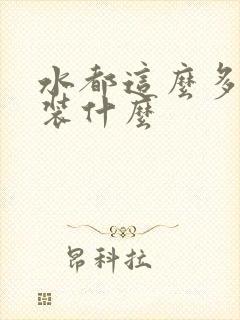 水都這麼多
裝什麼
昂科拉